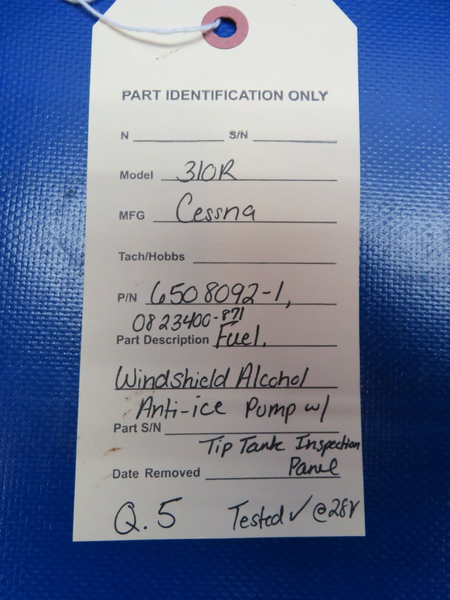 PART IDENTIFICATION ONLY
N S/N
Model 310R
MFG Cessna
Tach/Hobbs
P/N 6508092-1,
0823400-871
Part Description Fuel,
Windshield Alcohol
Anti-ice Pump w/
Part S/N
Tip Tank Inspection
Date Removed Panel
Q.5 Tested ✓ @28V